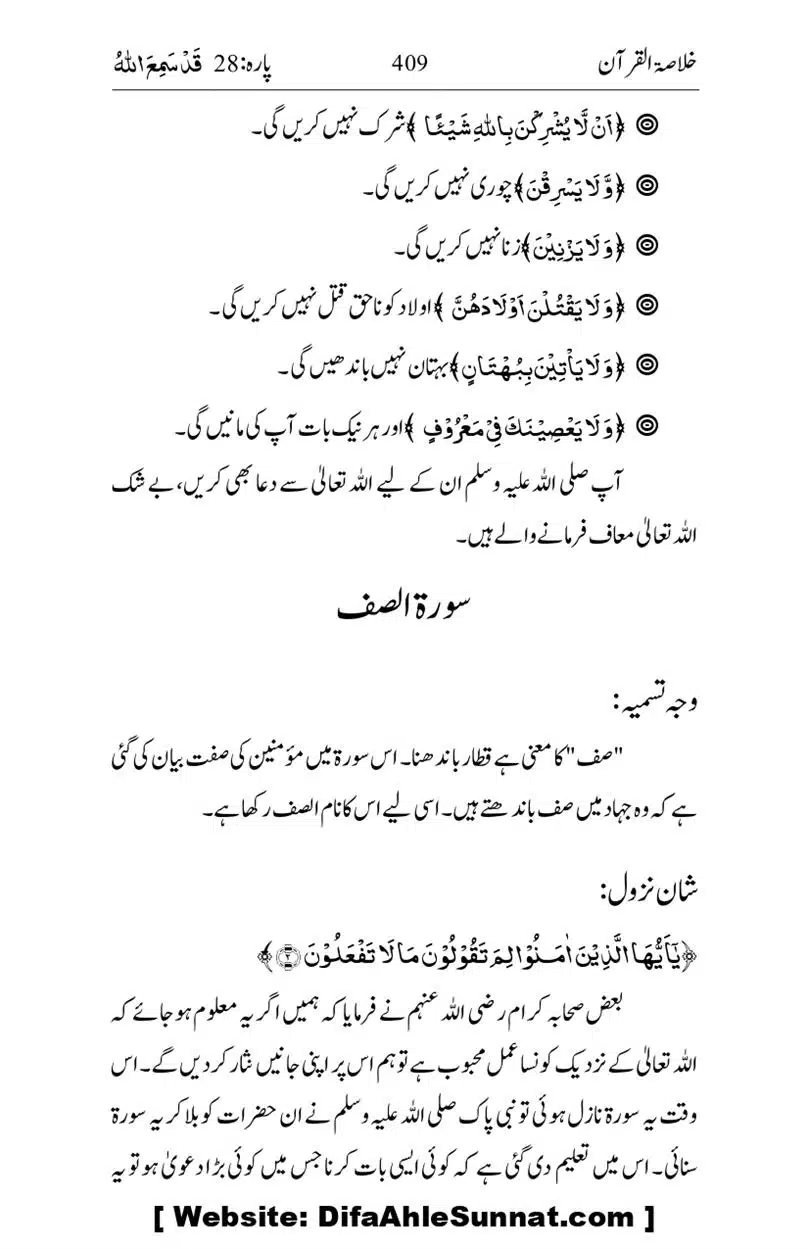 خلاصۃ القرآن 409 پارہ:28 قَدْ سَمِعَ اللّٰهُ
﴿اَنْ لَّا يُشْرِكْنَ بِاللّٰهِ شَيْئًا﴾ شرک نہیں کریں گی۔
﴿وَّلَا يَسْرِقْنَ﴾ چوری نہیں کریں گی۔
﴿وَلَا يَزْنِيْنَ﴾ زنا نہیں کریں گی۔
﴿وَلَا يَقْتُلْنَ اَوْلَادَهُنَّ﴾ اولاد کو ناحق قتل نہیں کریں گی۔
﴿وَلَا يَأْتِيْنَ بِبُهْتَانٍ﴾ بہتان نہیں باندھیں گی۔
﴿وَلَا يَعْصِيْنَكَ فِيْ مَعْرُوْفٍ﴾ اور ہر نیک بات آپ کی مانیں گی۔
آپ صلی اللہ علیہ وسلم ان کے لیے اللہ تعالیٰ سے دعا بھی کریں، بے شک
اللہ تعالیٰ معاف فرمانے والے ہیں۔
سورۃ الصف
وجہ تسمیہ:
"صف" کا معنی ہے قطار باندھنا۔ اس سورۃ میں مؤمنین کی صفت بیان کی گئی
ہے کہ وہ جہاد میں صف باندھتے ہیں۔ اسی لیے اس کا نام الصف رکھا ہے۔
شان نزول:
﴿يٰۤاَيُّهَا الَّذِيْنَ اٰمَنُوْا لِمَ تَقُوْلُوْنَ مَا لَا تَفْعَلُوْنَ ۝۲﴾
بعض صحابہ کرام رضی اللہ عنہم نے فرمایا کہ ہمیں اگر یہ معلوم ہو جائے کہ
اللہ تعالیٰ کے نزدیک کونسا عمل محبوب ہے تو ہم اس پر اپنی جانیں نثار کر دیں گے۔ اس
وقت یہ سورۃ نازل ہوئی تو نبی پاک صلی اللہ علیہ وسلم نے ان حضرات کو بلا کر یہ سورۃ
سنائی۔ اس میں تعلیم دی گئی ہے کہ کوئی ایسی بات کرنا جس میں کوئی بڑا دعویٰ ہو تو یہ
[ Website: DifaAhleSunnat.com ]